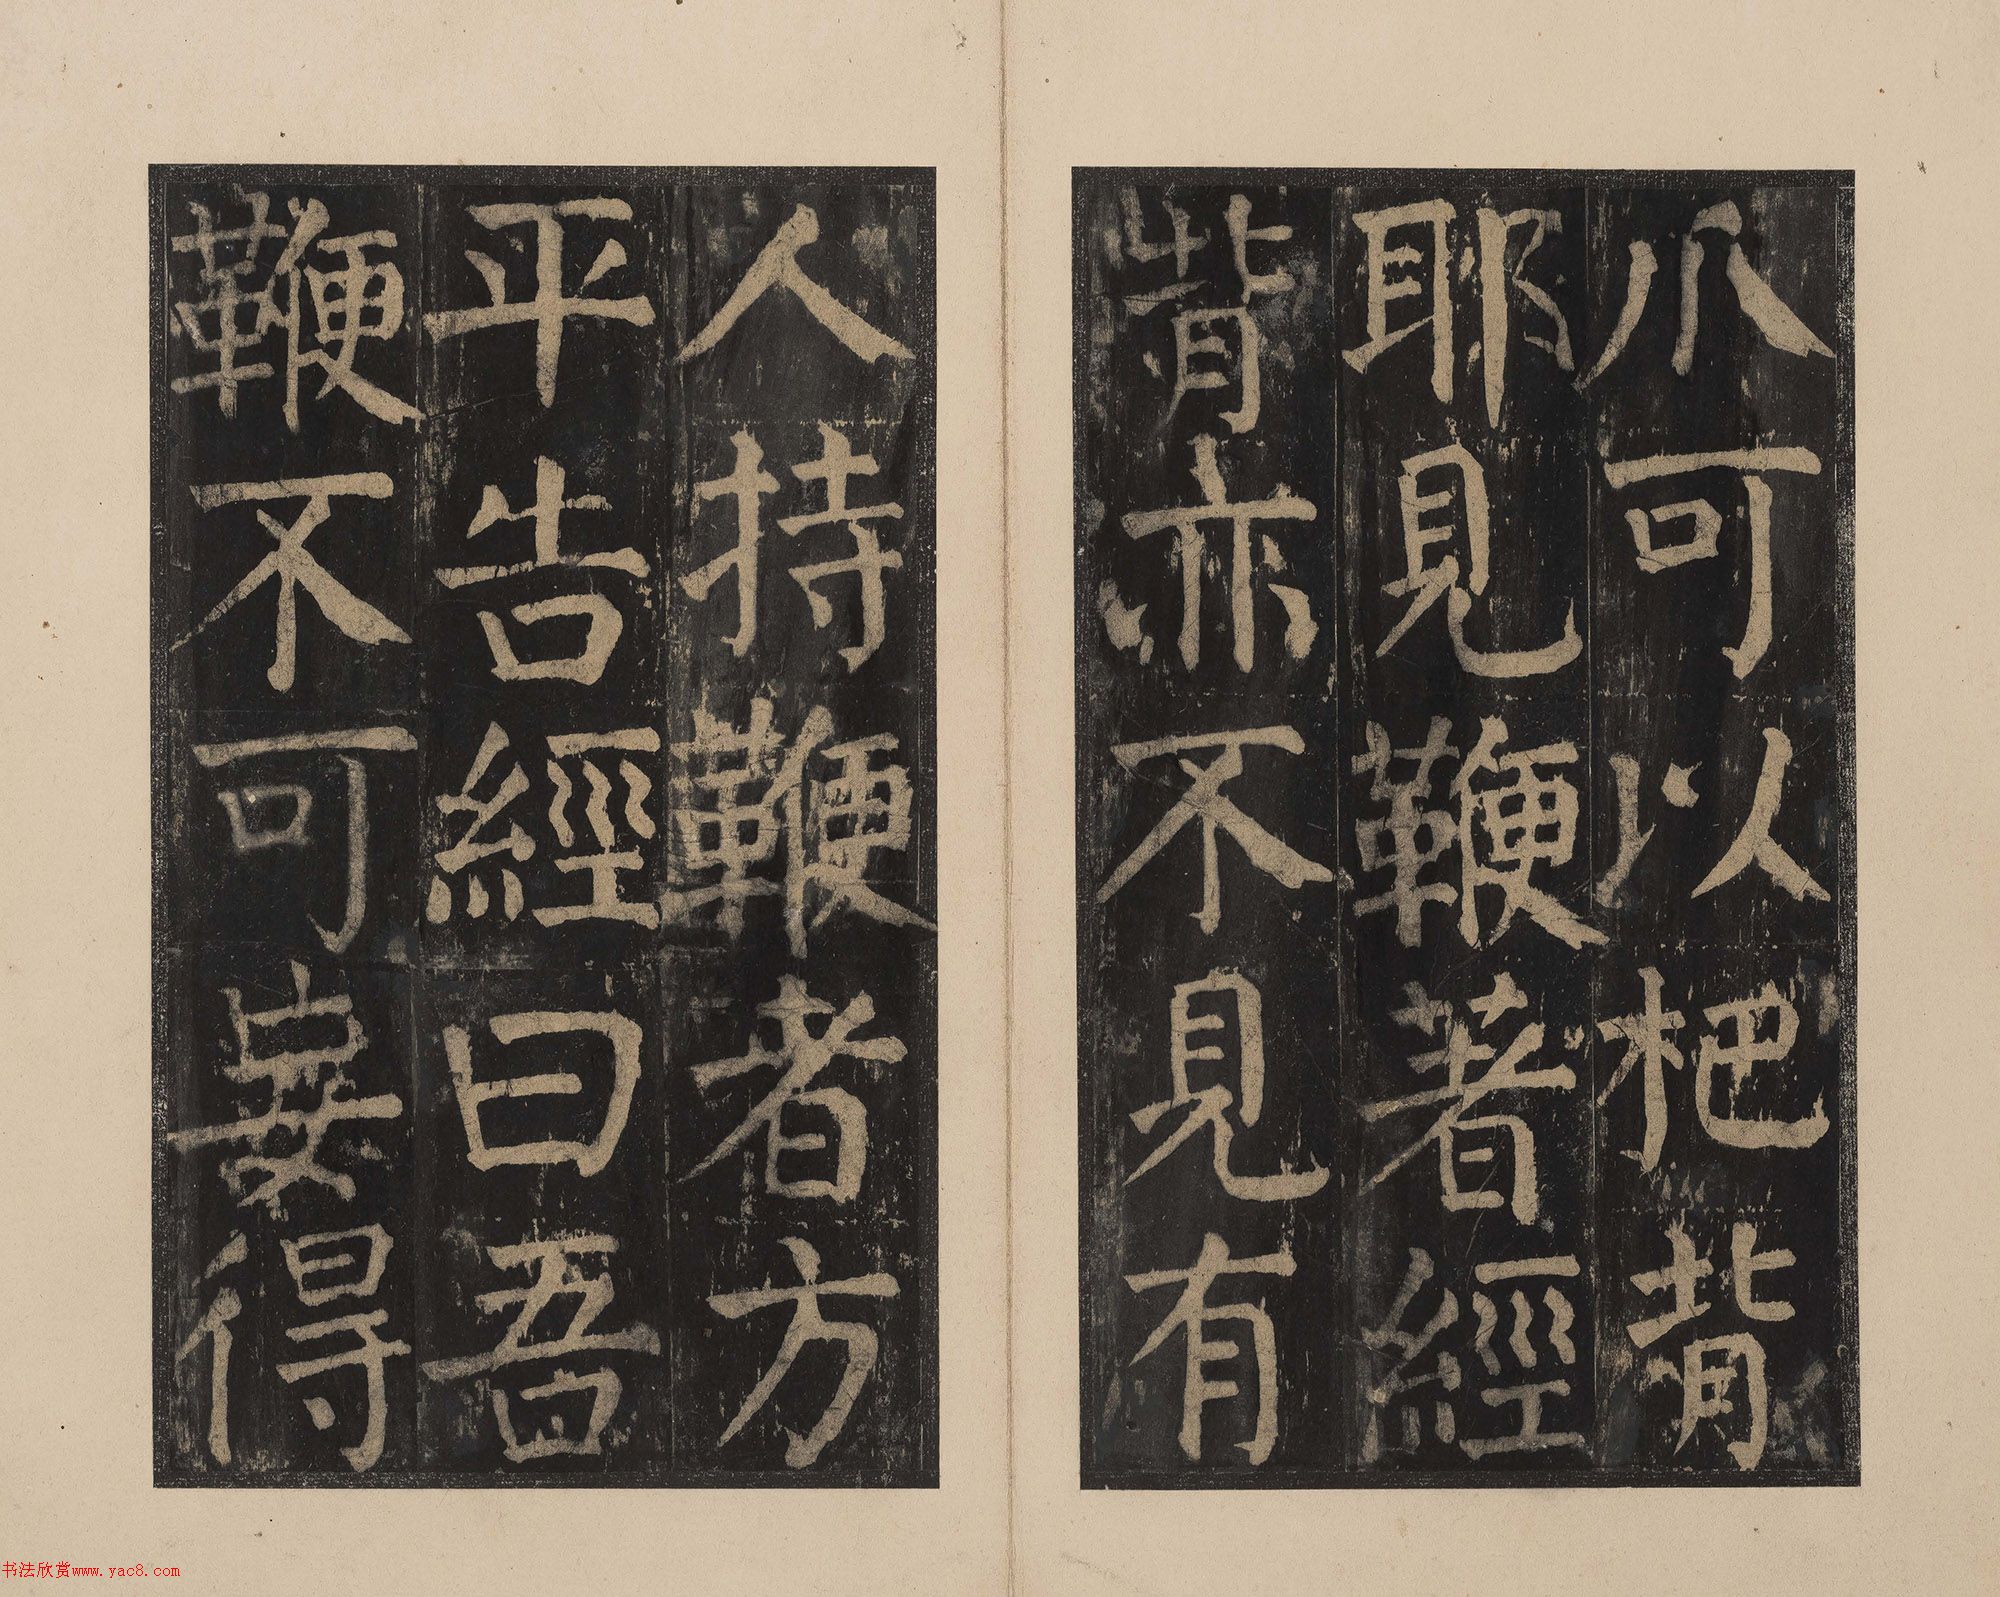 爪可以杷背
耶見鞭著經
背亦不見有
人持鞭者方
平告經曰吾
鞭不可妄得
书法欣赏www.yac8.com